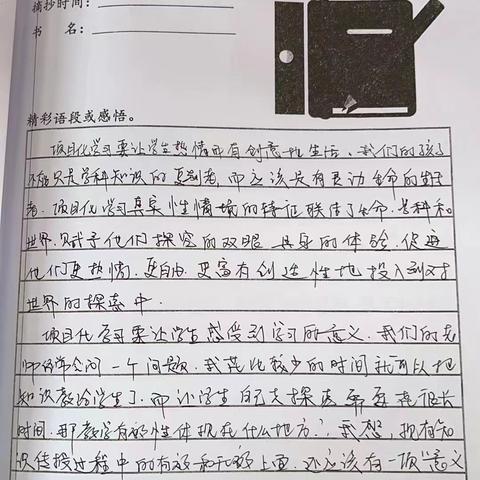 摘抄时间：
书 名：
精彩语段或感悟。
项目化学习要让学生热情而有创意地生活。我们的孩子
不能只是学科知识的复制者，而应该是有灵动生命的
者。项目化学习真实性情境的特征联结了生命、学科和
世界，赋予他们探究的双眼，具身的体验，促进
他们更热情、更自由、更富有创造性地投入到对
世界的探索中。
项目化学习要让学生感受到学习的意义。我们的老
师经常会问一个问题，我花比较少的时间就可以把
知识教给学生了，而让学生自己去探索需要花很长
时间，那教学有效性体现在什么地方？我想，现有知
识传授过程中的有效和无效上面，还应该有一项“意义